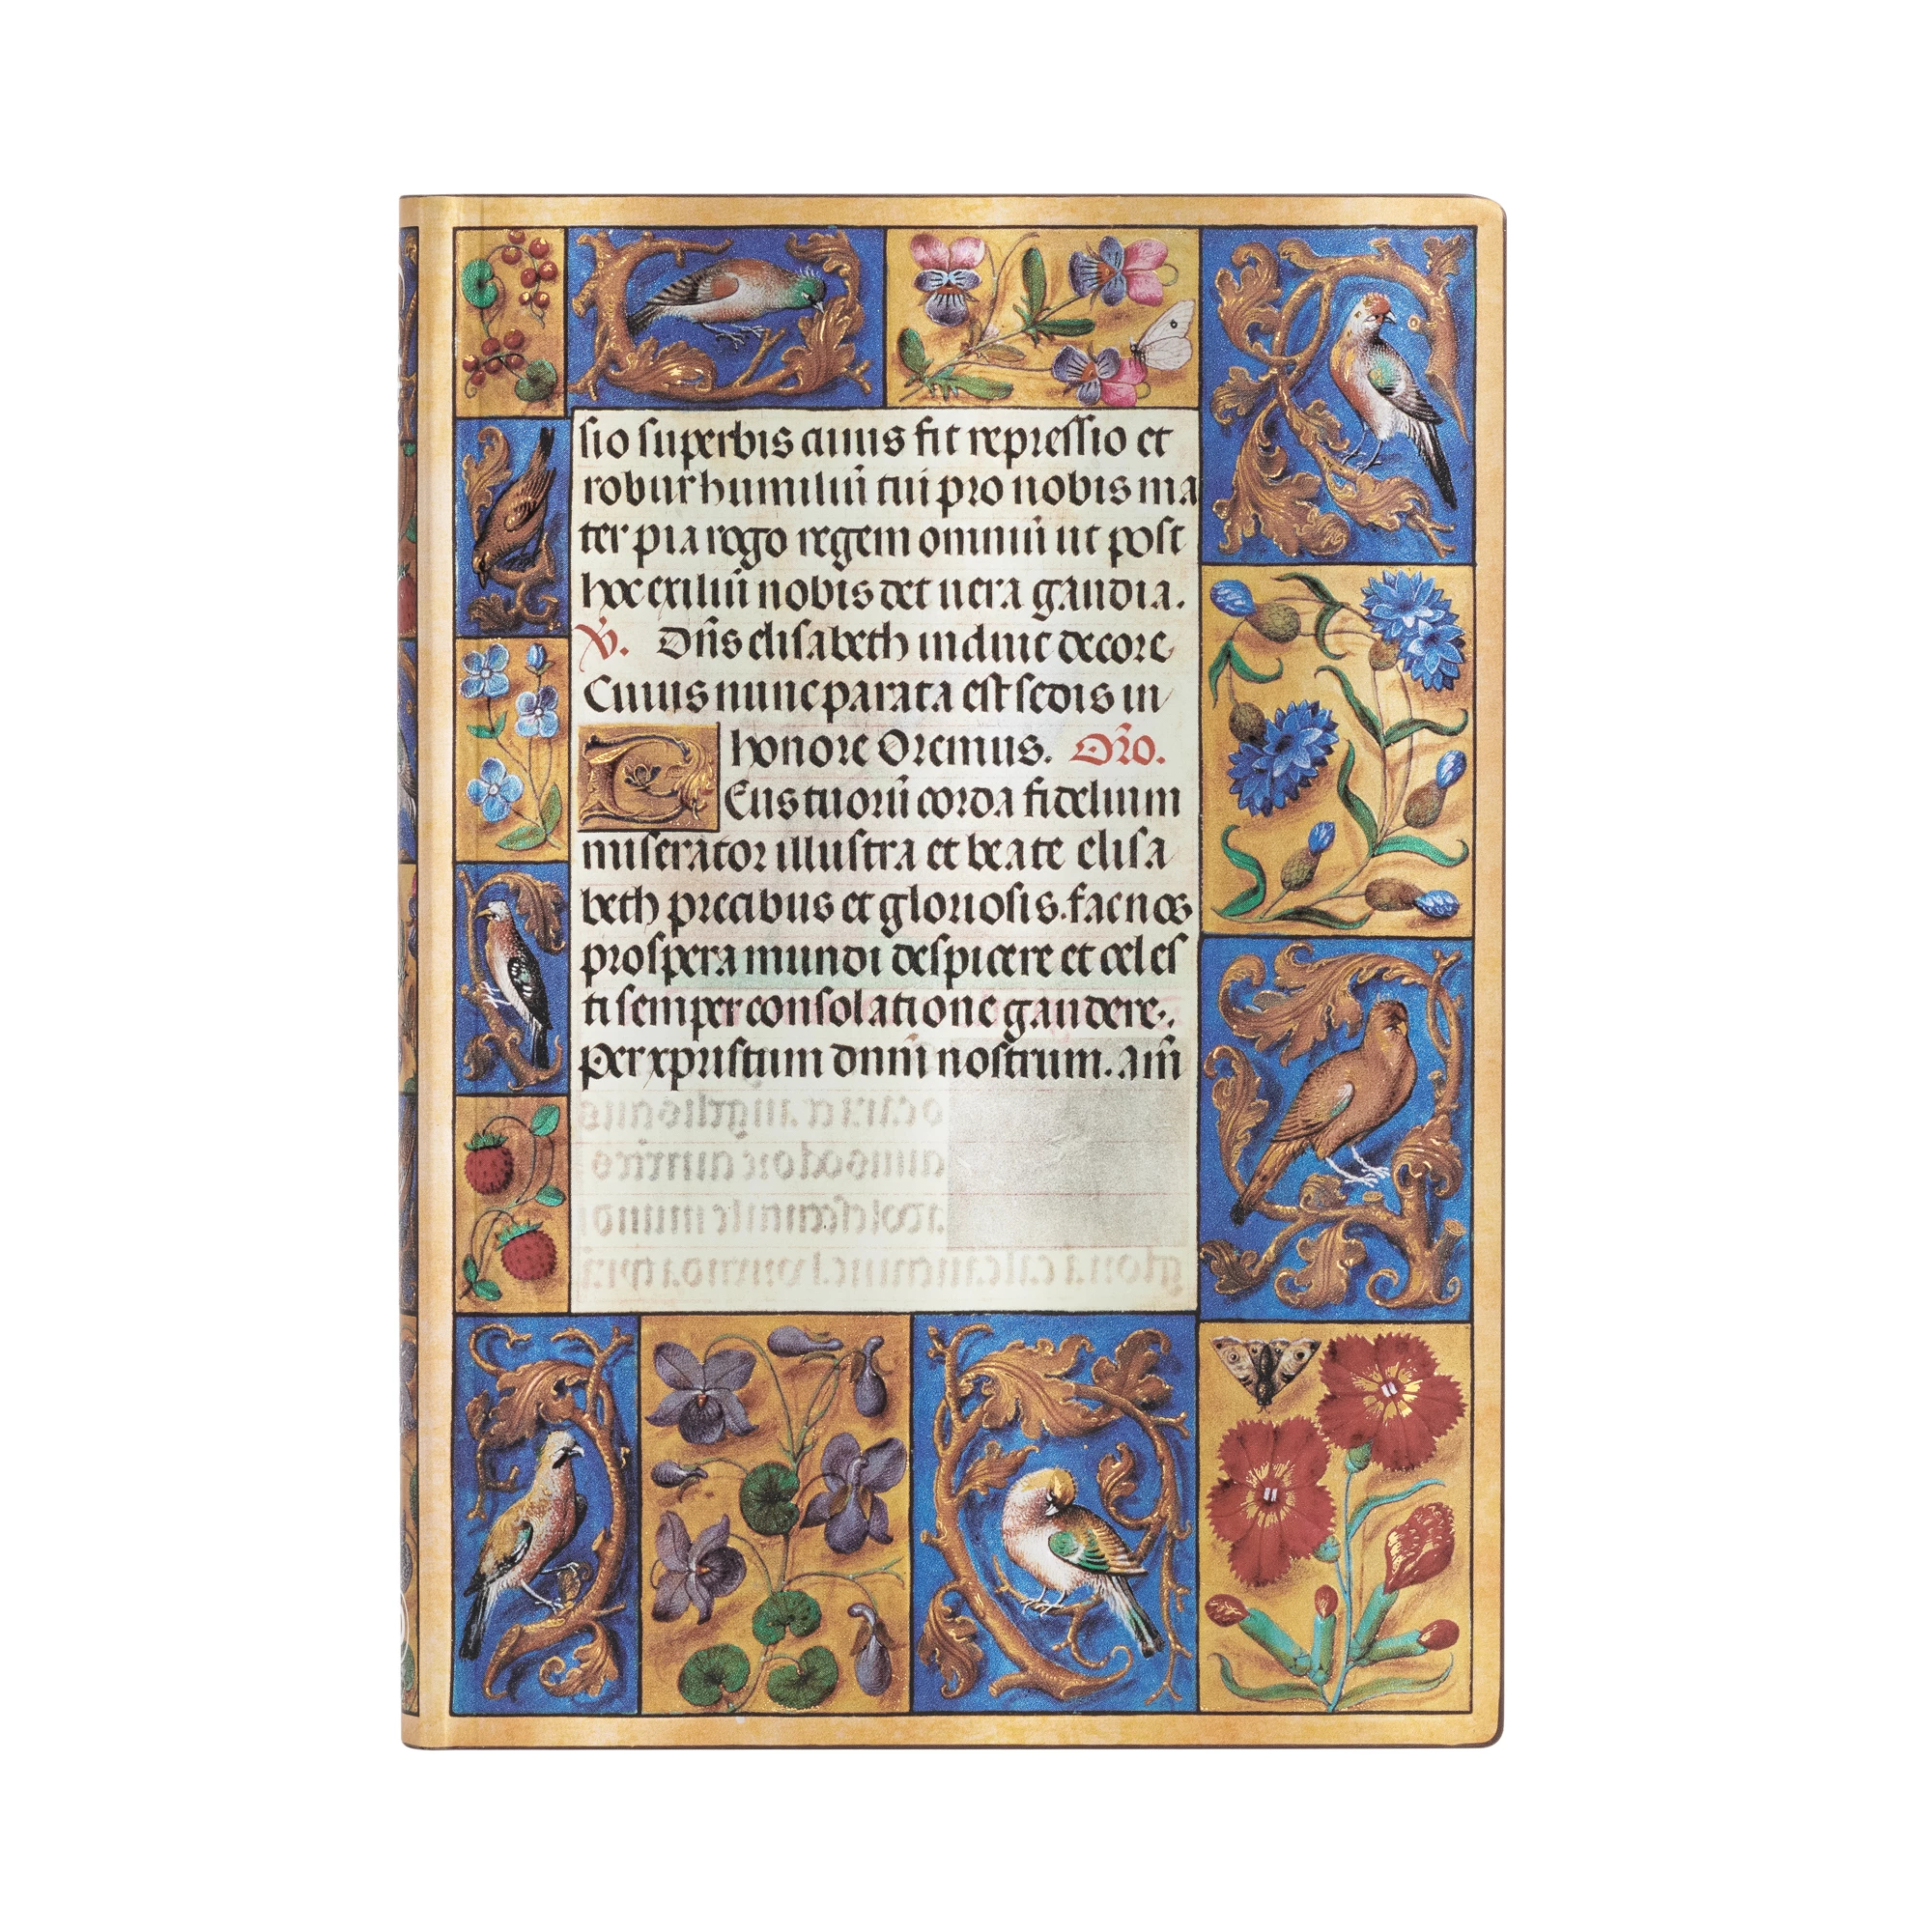 sio superbis cuius fit repressio et
robur humiliū tui pro nobis ma
ter pia rogo regem omniū ut post
hoc exiliū nobis det uera gaudia.
℣. Ora elisabeth in diuie decore
Cuius nunc parata est sedis in
honore Oremus. Oro.
Deus tuorū corda fidelium
miserator illustra et beate elisa
beth precibus et gloriosis. fac nos
prospera mundi despicere et celes
ti semper consolatione gaudere.
Per xpristum dnm̄ nostrum. am̄